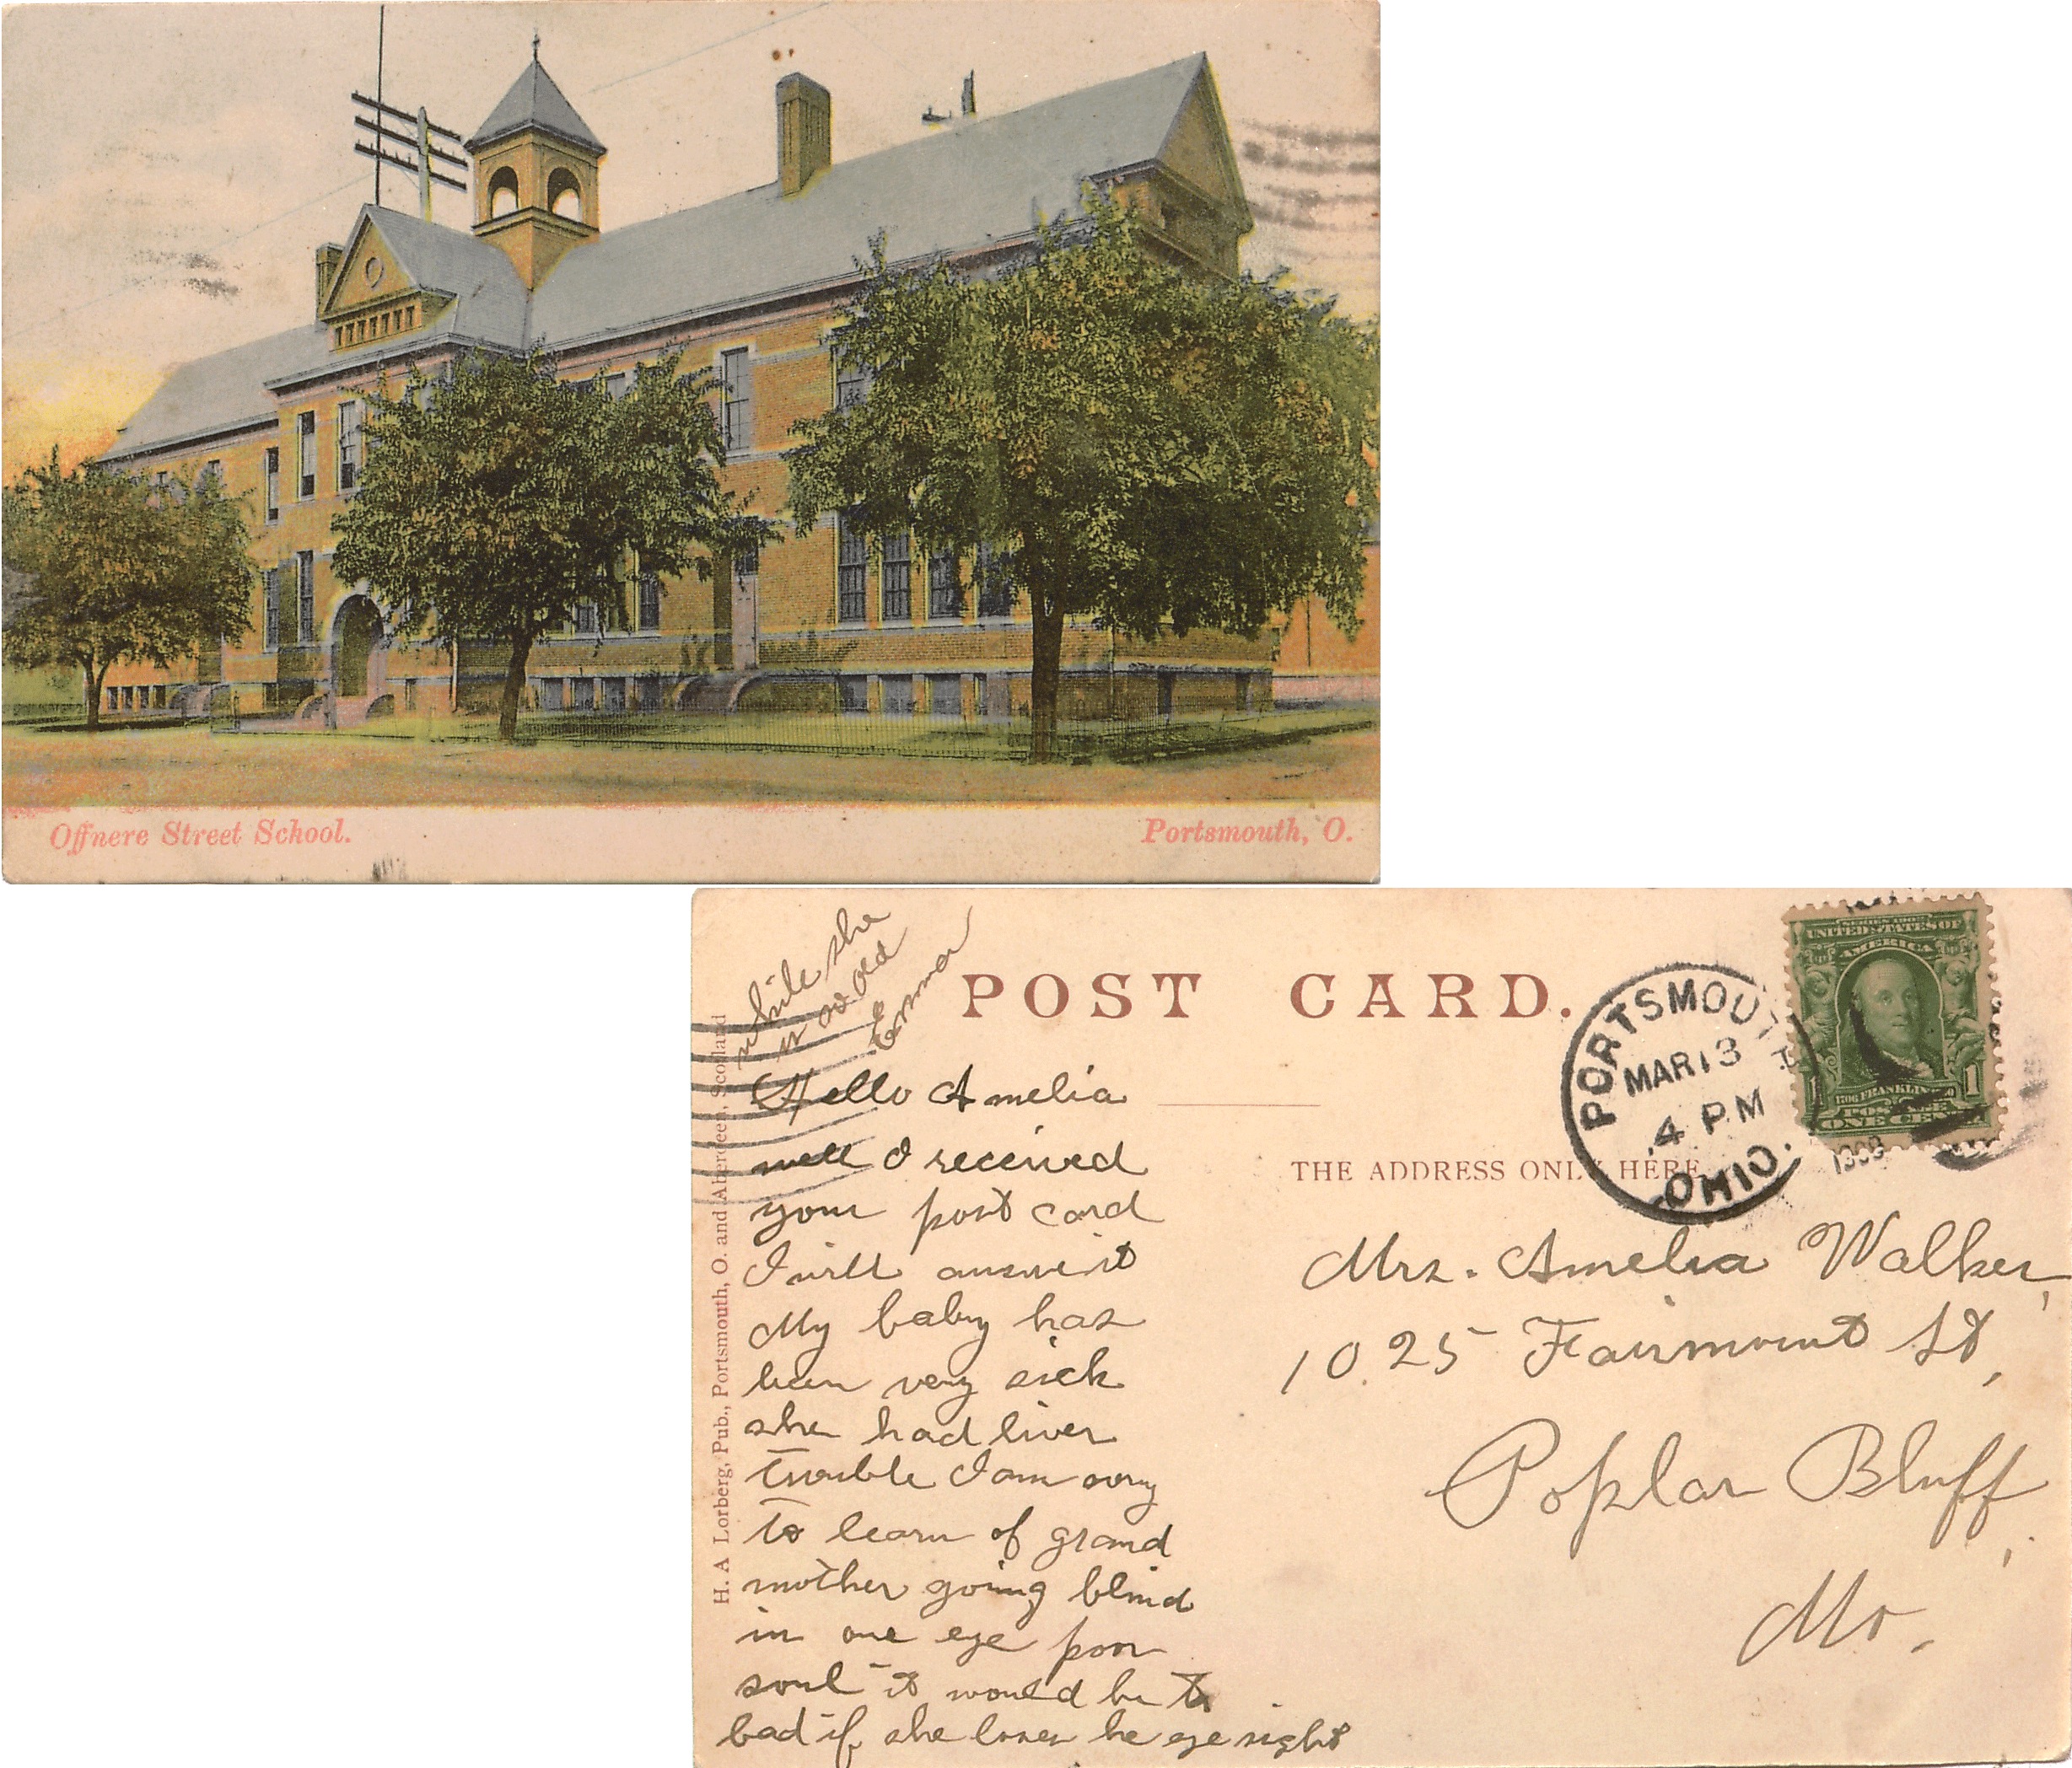 Offnere Street School.
Portsmouth, O.
POST CARD.
THE ADDRESS ONLY HERE
H. A Lorberg, Pub., Portsmouth, O. and Aberdeen, Scotland
PORTSMOUTH
MAR 13
4 PM
OHIO.
SERIES 1902
UNITED STATES OF
AMERICA
1706 FRANKLIN 1790
POSTAGE
1 ONE CENT 1
Mrs. Amelia Walker,
1025 Fairmount St,
Poplar Bluff,
Mo.
Hello Amelia
well I received
your post card
I will answer it
My baby has
been very sick
she had liver
trouble I am sory
to learn of grand
mother going blind
in one eye poor
soul it would be to
bad if she loses he eye sight
while she
is so old
Emma